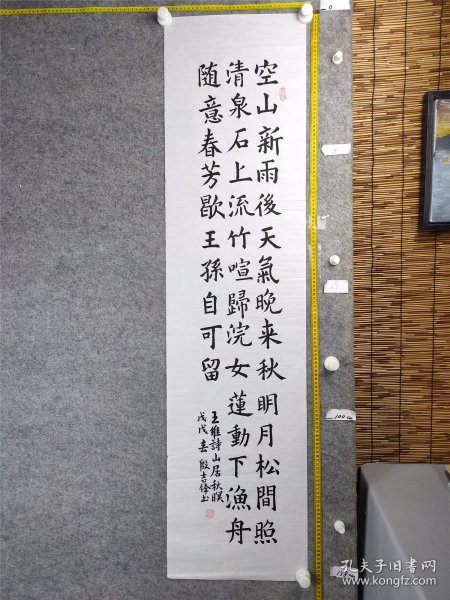 空山新雨後天氣晚来秋明月松間照
清泉石上流竹喧歸浣女蓮動下漁舟
随意春芳歇王孫自可留
王維詩山居秋暝
戊戌春殷吉
0
100 cm
孔夫子旧书网
www.kongfz.com